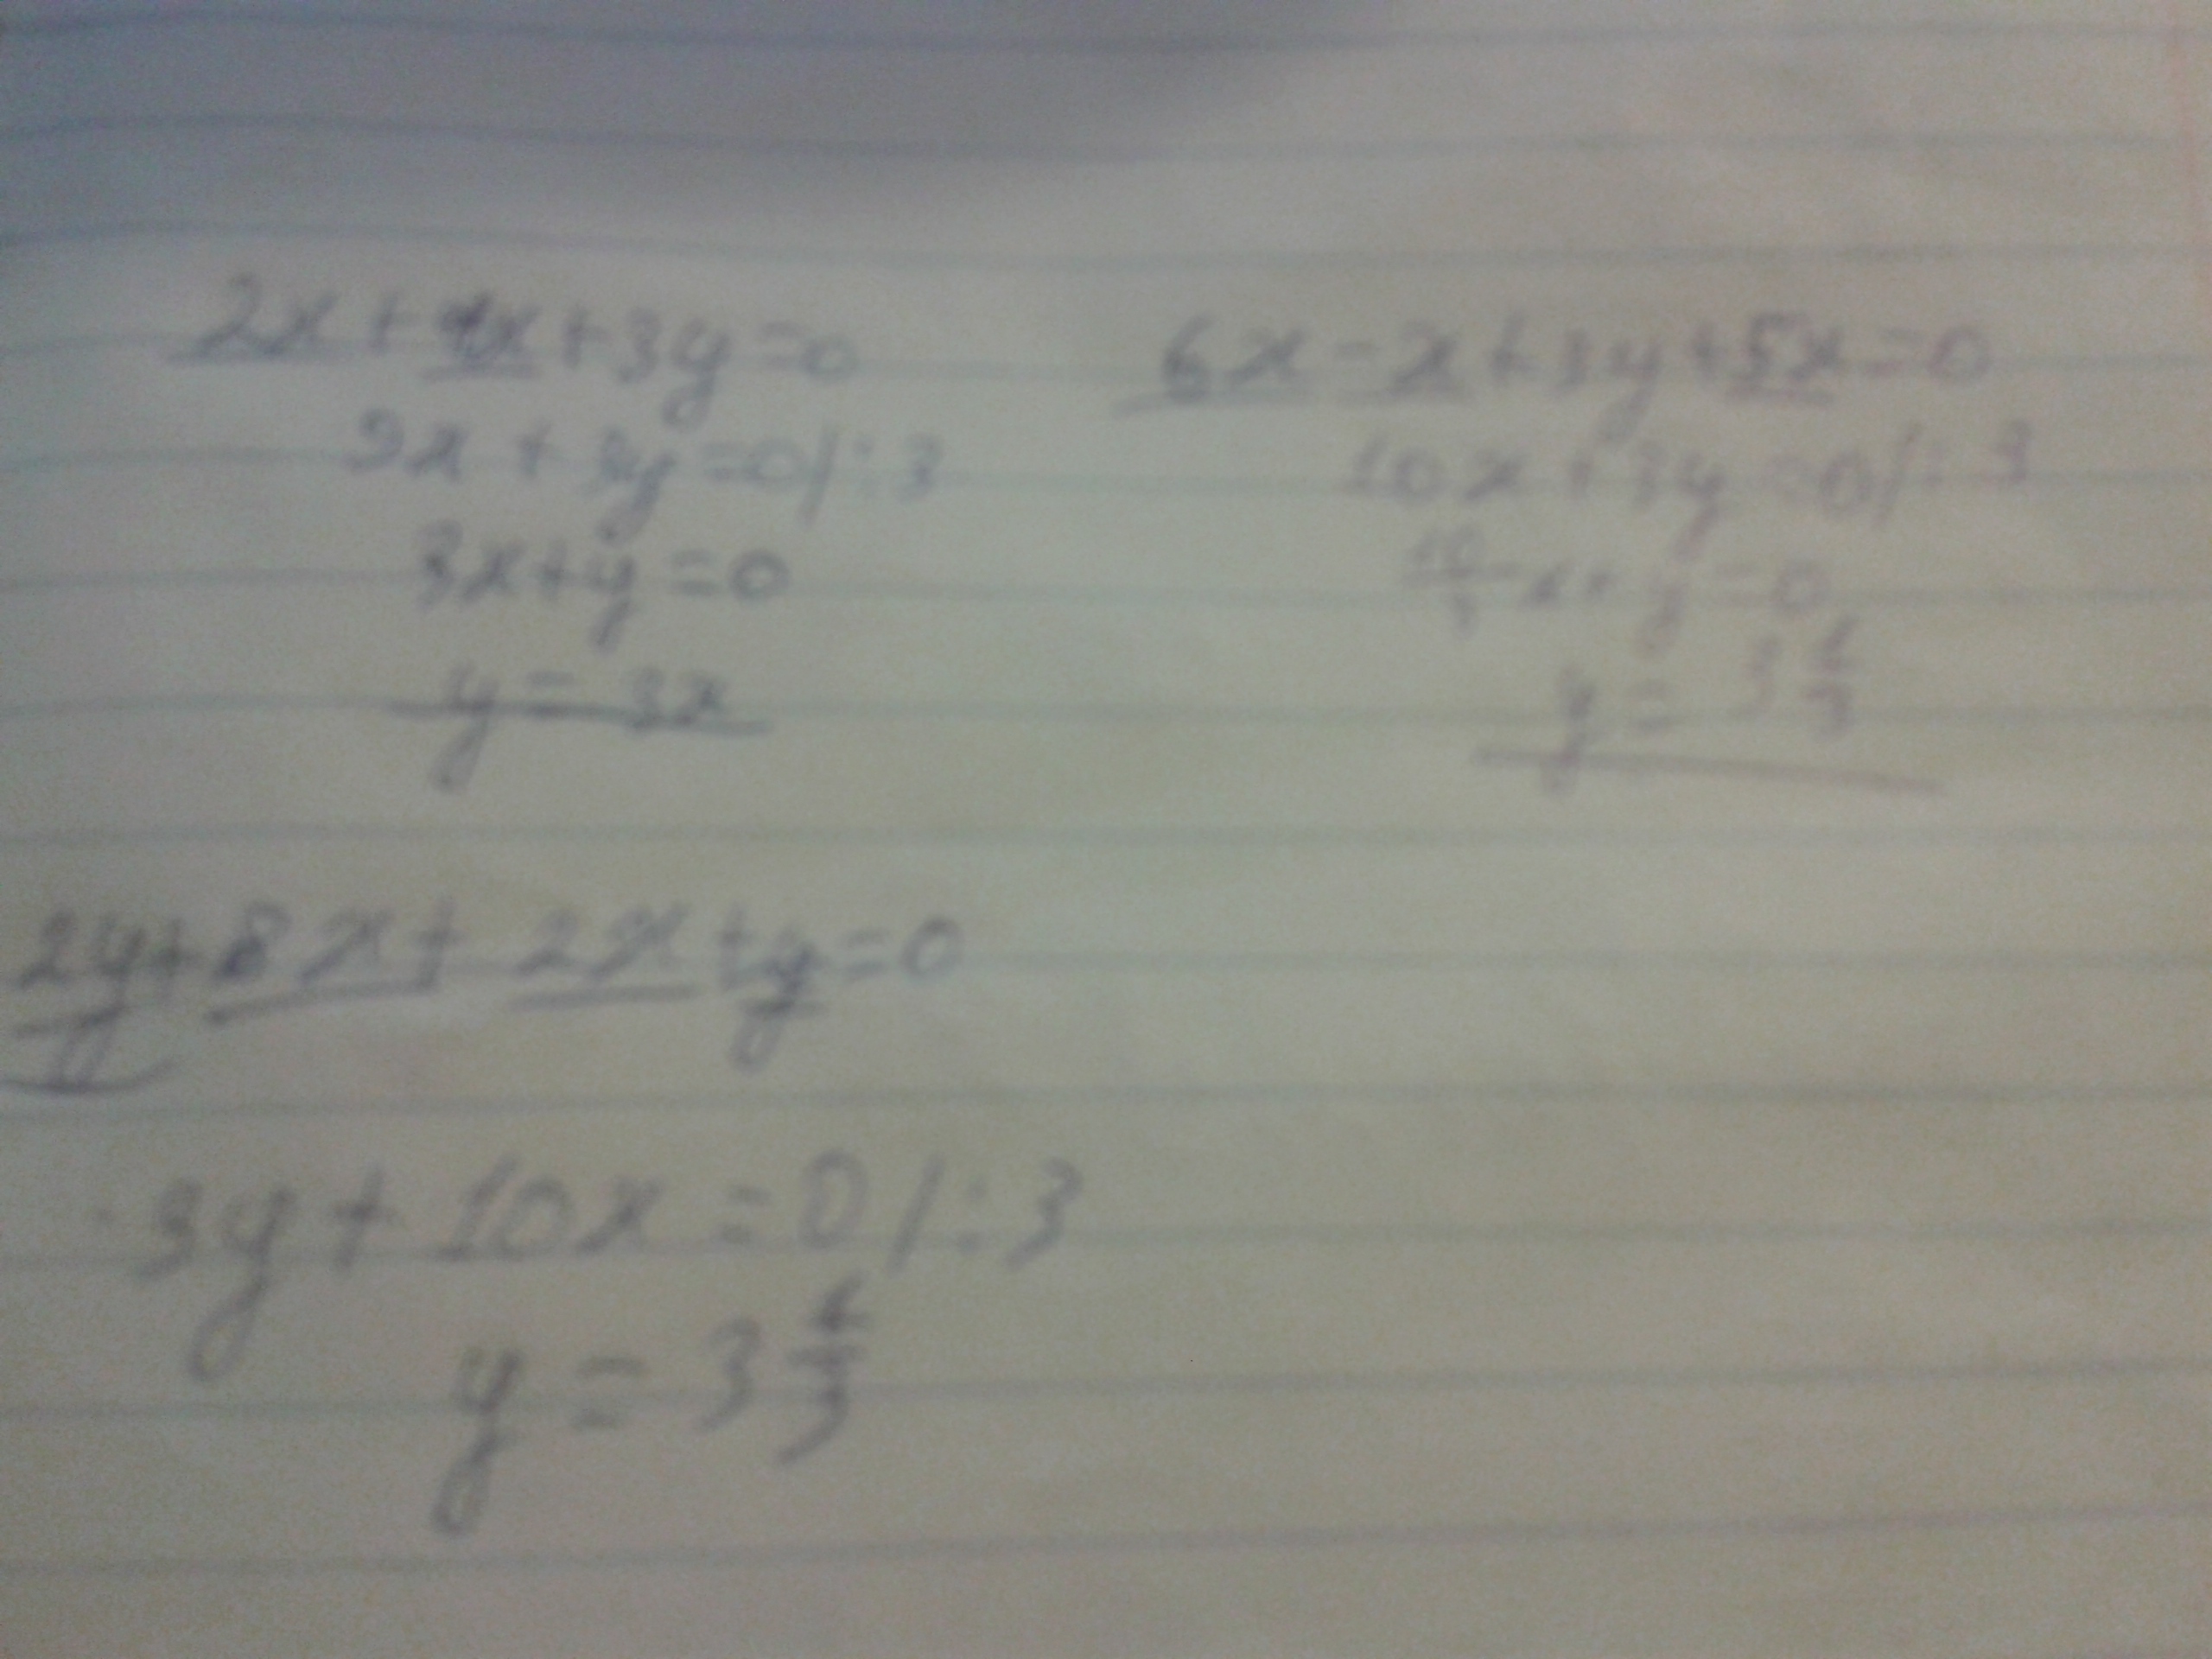 2x + 7x + 3y = 0
9x + 3y = 0 / : 3
3x + y = 0
y = 3x
6x - x + 3y + 5x = 0
10x + 3y = 0 / : 3
10/3 x + y = 0
y = 3 1/3
2y + 8x + 2x + y = 0
3y + 10x = 0 / : 3
y = 3 1/3